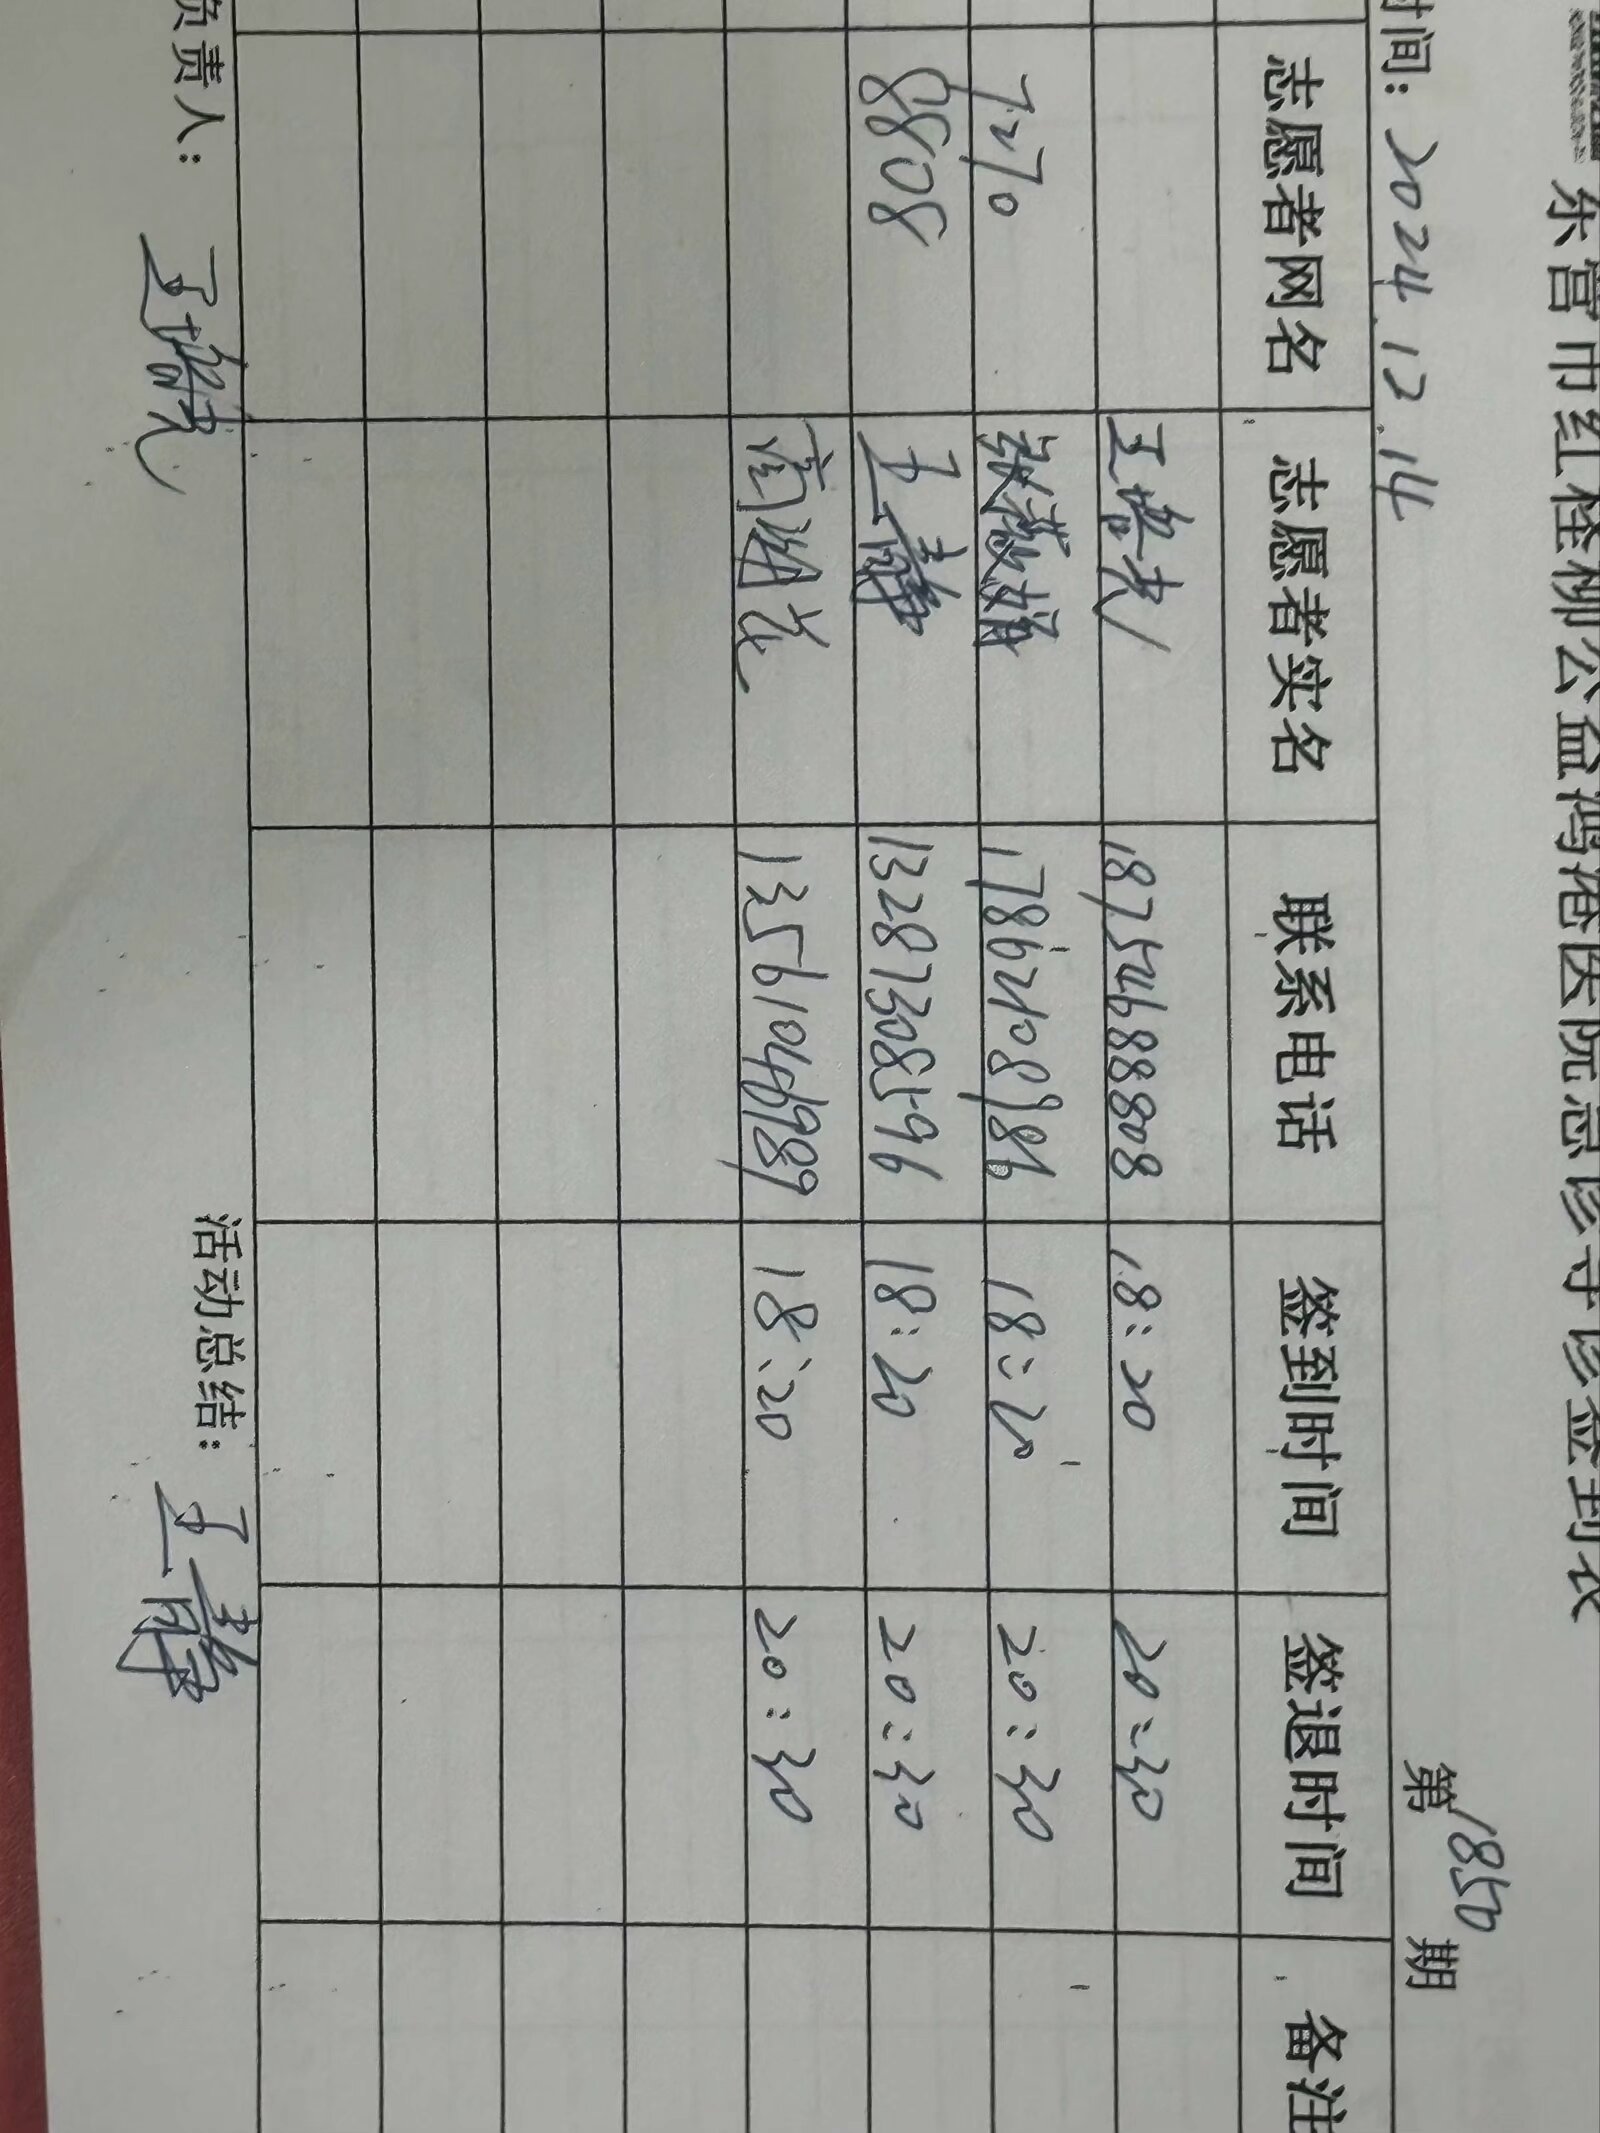 东营市红柽柳公益鸿港医院急诊导诊签到表
时间：2024.12.14 第1850期
志愿者网名 志愿者实名 联系电话 签到时间 签退时间 备注
18754688808 18:20 20:30
7270 张 17862108986 18:20 20:30
8808 王静 13287308596 18:20 20:30
13561046989 18:20 20:30
负责人：王 活动总结：王静